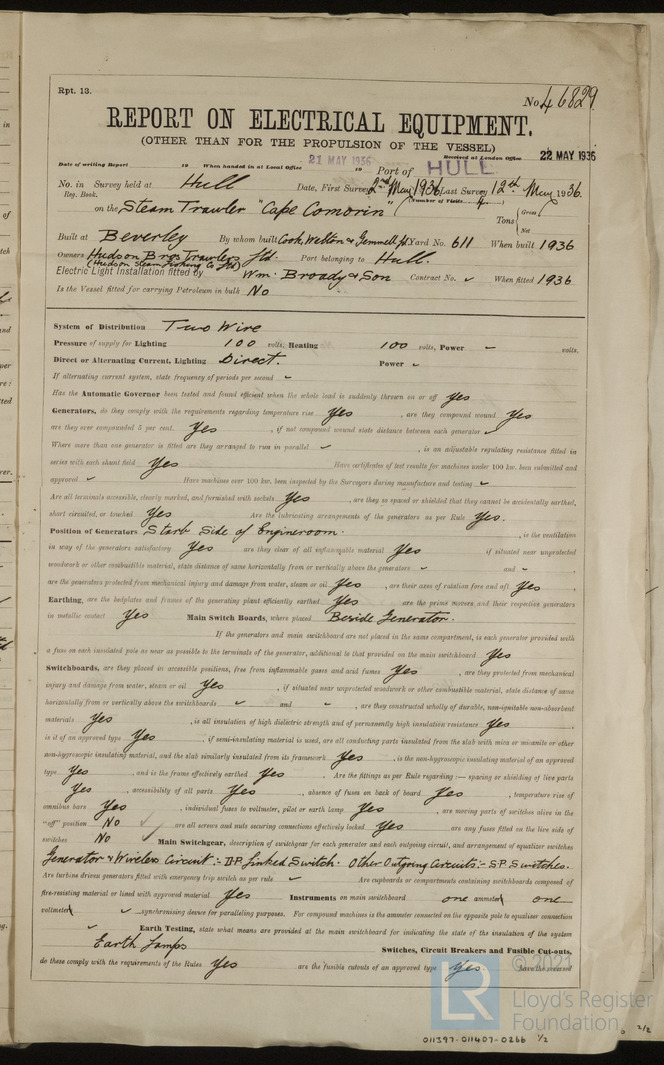 Rpt. 13.
No. 46829
REPORT ON ELECTRICAL EQUIPMENT.
(OTHER THAN FOR THE PROPULSION OF THE VESSEL)
Received at London Office 22 MAY 1936
Date of writing Report 19 When handed in at Local Office 21 MAY 1936 19 Port of HULL
No. in Survey held at Hull Date, First Survey 2nd May 1936 Last Survey 12th May 1936.
Reg. Book. (Number of Visits 4)
on the Steam Trawler "Cape Comorin" Tons { Gross Net
Built at Beverley By whom built Cook, Welton & Gemmell Ld Yard No. 611 When built 1936
Owners Hudson Bros Trawlers Ltd. Port belonging to Hull.
(Hudson Steam Fishing Co Ltd)
Electric Light Installation fitted by Wm. Broady & Son Contract No. ✓ When fitted 1936
Is the Vessel fitted for carrying Petroleum in bulk No
System of Distribution Two Wire
Pressure of supply for Lighting 100 volts, Heating 100 volts, Power ✓ volts.
Direct or Alternating Current, Lighting Direct. Power ✓
If alternating current system, state frequency of periods per second ✓
Has the Automatic Governor been tested and found efficient when the whole load is suddenly thrown on or off Yes
Generators, do they comply with the requirements regarding temperature rise Yes, are they compound wound Yes
are they over compounded 5 per cent. Yes, if not compound wound state distance between each generator ✓
Where more than one generator is fitted are they arranged to run in parallel ✓, is an adjustable regulating resistance fitted in
series with each shunt field Yes Have certificates of test results for machines under 100 kw. been submitted and
approved ✓ Have machines over 100 kw. been inspected by the Surveyors during manufacture and testing ✓
Are all terminals accessible, clearly marked, and furnished with sockets Yes, are they so spaced or shielded that they cannot be accidentally earthed,
short circuited, or touched Yes Are the lubricating arrangements of the generators as per Rule Yes.
Position of Generators Starb Side of Engineroom., is the ventilation
in way of the generators satisfactory Yes are they clear of all inflammable material Yes if situated near unprotected
woodwork or other combustible material, state distance of same horizontally from or vertically above the generators ✓ and ✓,
are the generators protected from mechanical injury and damage from water, steam or oil Yes, are their axes of rotation fore and aft Yes,
Earthing, are the bedplates and frames of the generating plant efficiently earthed Yes are the prime movers and their respective generators
in metallic contact Yes Main Switch Boards, where placed Beside Generator.
If the generators and main switchboard are not placed in the same compartment, is each generator provided with
a fuse on each insulated pole as near as possible to the terminals of the generator, additional to that provided on the main switchboard Yes
Switchboards, are they placed in accessible positions, free from inflammable gases and acid fumes Yes, are they protected from mechanical
injury and damage from water, steam or oil Yes, if situated near unprotected woodwork or other combustible material, state distance of same
horizontally from or vertically above the switchboards ✓ and ✓, are they constructed wholly of durable, non-ignitable non-absorbent
materials Yes, is all insulation of high dielectric strength and of permanently high insulation resistance Yes,
is it of an approved type Yes, if semi-insulating material is used, are all conducting parts insulated from the slab with mica or micanite or other
non-hygroscopic insulating material, and the slab similarly insulated from its framework Yes, is the non-hygroscopic insulating material of an approved
type Yes, and is the frame effectively earthed Yes. Are the fittings as per Rule regarding:— spacing or shielding of live parts
Yes, accessibility of all parts Yes, absence of fuses on back of board Yes, temperature rise of
omnibus bars Yes, individual fuses to voltmeter, pilot or earth lamp Yes, are moving parts of switches alive in the
"off" position No ✓ are all screws and nuts securing connections effectively locked Yes are any fuses fitted on the live side of
switches No ✓ Main Switchgear, description of switchgear for each generator and each outgoing circuit, and arrangement of equalizer switches
Generator & Wireless Circuit:- D.P. Linked Switch. Other Outgoing Circuits:- S.P. Switches.
Are turbine driven generators fitted with emergency trip switch as per rule ✓ Are cupboards or compartments containing switchboards composed of
fire-resisting material or lined with approved material Yes Instruments on main switchboard one ammeter one
voltmeter ✓ synchronising device for paralleling purposes. For compound machines is the ammeter connected on the opposite pole to equaliser connection
✓ Earth Testing, state what means are provided at the main switchboard for indicating the state of the insulation of the system
Earth Lamps Switches, Circuit Breakers and Fusible Cut-outs,
do these comply with the requirements of the Rules Yes are the fusible cutouts of an approved type Yes. have the reversed
© 2021
LR Lloyd's Register
Foundation
011397-011407-0266 1/2
2/2